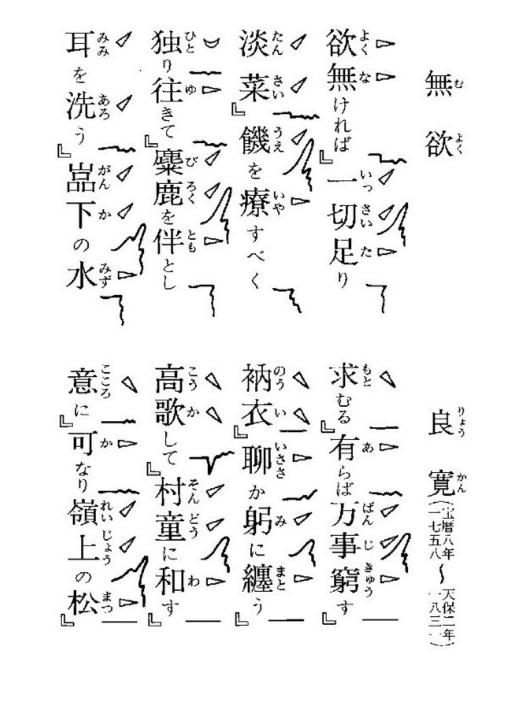 無欲 良寛(宝暦八年一七五八〜天保二年一八三一)
欲無ければ一切足り 求むる有らば万事窮す
淡菜饑を療すべく 衲衣聊か躬に纏う
独り往きて麋鹿を伴とし 高歌して村童に和す
耳を洗う嵓下の水 意に可なり嶺上の松